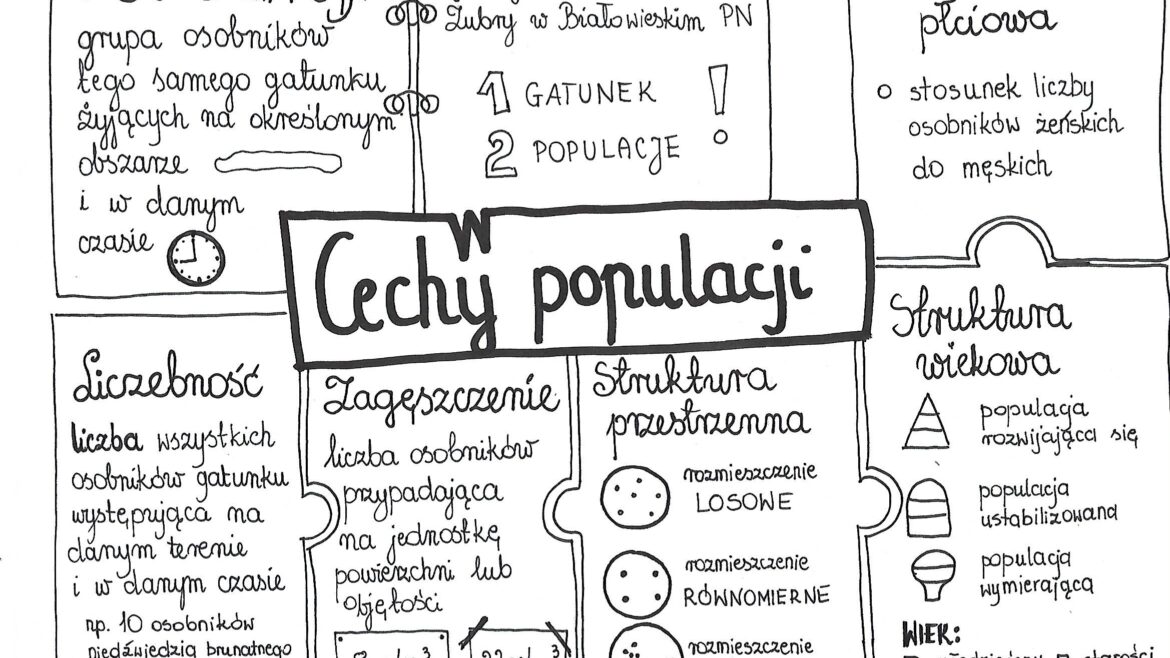 grupa osobników
tego samego gatunku
żyjących na określonym
obszarze
i w danym
czasie
Żubry w Białowieskim PN
1 GATUNEK
2 POPULACJE
!
płciowa
stosunek liczby
osobników żeńskich
do męskich
Cechy populacji
Liczebność
liczba wszystkich
osobników gatunku
występująca na
danym terenie
i w danym czasie
np. 10 osobników
niedźwiedzia brunatnego
Zagęszczenie
liczba osobników
przypadająca
na jednostkę
powierzchni lub
objętości
Struktura
przestrzenna
rozmieszczenie
LOSOWE
rozmieszczenie
RÓWNOMIERNE
rozmieszczenie
Struktura
wiekowa
populacja
rozwijająca się
populacja
ustabilizowana
populacja
wymierająca
WIEK: